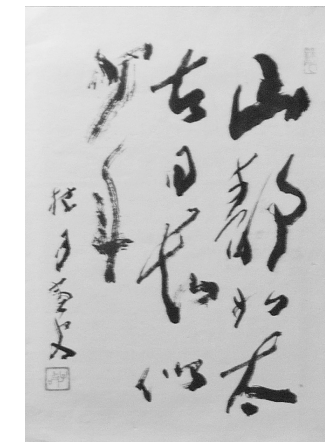 山靜如太
古日長似
少年